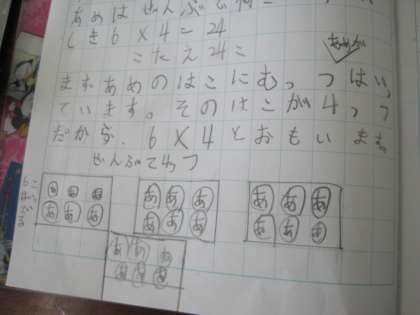 あめは ぜんぶで何こ
しき6×4=24
こたえ24こ
あめが
まずあめのはこにむっつはいっ
ています。そのはこが4つ
だから、6×4とおもいます。
ぜんぶでわっつ
あ あ あ
あ あ あ
あ あ あ
あ あ あ
あ あ あ
あ あ あ
あ あ あ
あ あ あ